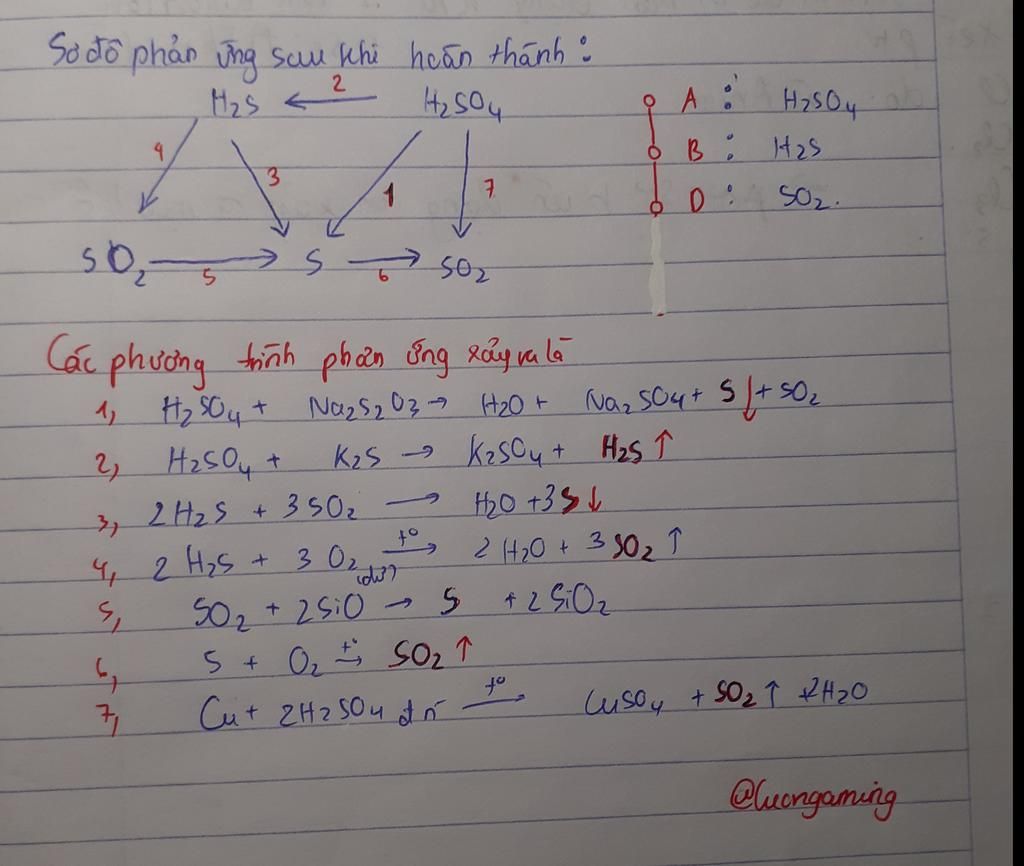 Sơ đồ phản ứng sau khi hoàn thành:
H2S ← 2 H2SO4
A : H2SO4
B : H2S
D : SO2.
4 3 1 7
SO2 → 5 S → 6 SO2
Các phương trình phản ứng xảy ra là
1, H2SO4 + Na2S2O3 → H2O + Na2SO4 + S↓ + SO2
2, H2SO4 + K2S → K2SO4 + H2S ↑
3, 2H2S + 3SO2 → H2O + 3S↓
4, 2H2S + 3O2 (dư) t° → 2H2O + 3SO2 ↑
5, SO2 + 2SiO → S + 2SiO2
6, S + O2 t° → SO2 ↑
7, Cu + 2H2SO4 đn t° → CuSO4 + SO2 ↑ + 2H2O
@luongaming